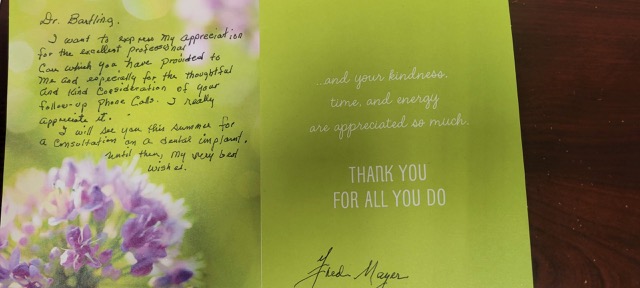 Dr. Bartling,
I want to express my appreciation
for the excellent professional
Care which you have provided to
me and especially for the thoughtful
and kind consideration of your
follow-up phone calls. I really
appreciate it.
I will see you this summer for
a consultation on a dental implant.
Until then, my very best
wishes.
...and your kindness,
time, and energy
are appreciated so much.
THANK YOU
FOR ALL YOU DO
Fred Mayer